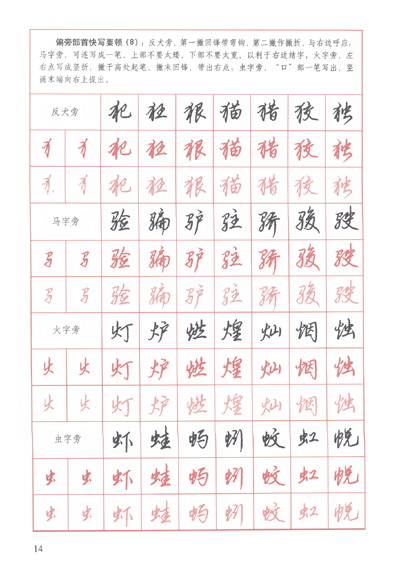 偏旁部首快写要领(8):反犬旁,第一撇回锋带弯钩,第二撇作撇折,与右边呼应;
马字旁,可连写成一笔,上部不要太矮,下部不要太宽,以利于右边结字;火字旁,左
右点写成竖折,撇于高处起笔,撇末回锋,带出右点;虫字旁,“口”部一笔写出,竖
画末端向右上提出。
反犬旁 犯 狂 狠 猫 猎 狡 独
犭 犭 犯 狂 狠 猫 猎 狡 独
犭 犭 犯 狂 狠 猫 猎 狡 独
马字旁 验 骗 驴 驻 骄 骏 驶
马 马 验 骗 驴 驻 骄 骏 驶
马 马 验 骗 驴 驻 骄 骏 驶
火字旁 灯 炉 燃 煌 灿 烟 烛
火 火 灯 炉 燃 煌 灿 烟 烛
火 火 灯 炉 燃 煌 灿 烟 烛
虫字旁 虾 蛙 蚂 蚓 蛟 虹 蜕
虫 虫 虾 蛙 蚂 蚓 蛟 虹 蜕
虫 虫 虾 蛙 蚂 蚓 蛟 虹 蜕
14